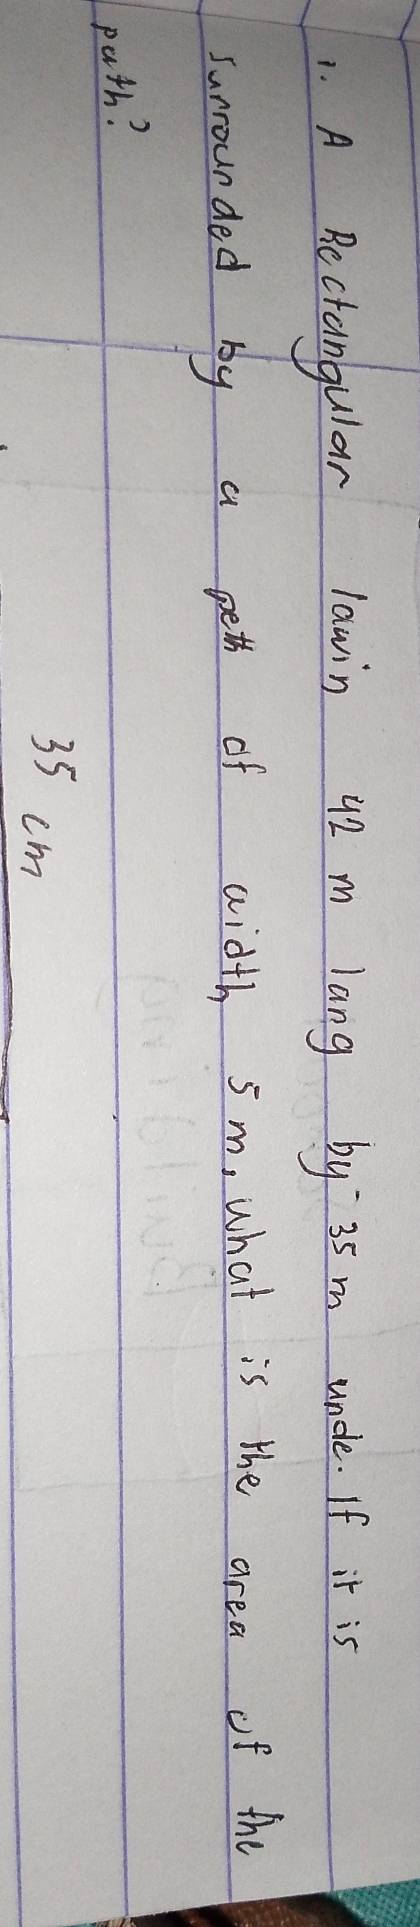 1. A Rectangular lawin 42 m lang by 35 m unde. If it is
surrounded by a peth of width 5 m, what is the area of the
path?
35 cm